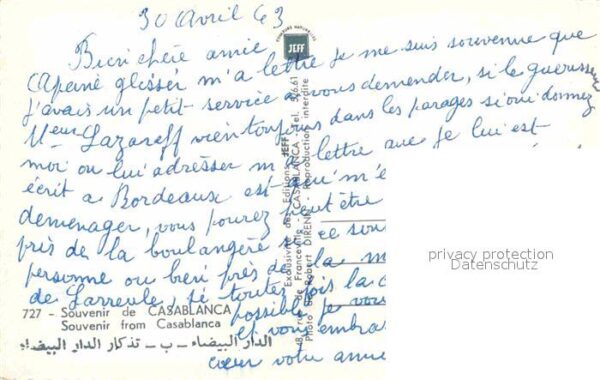 30 avril 63
Bien chère amie
à peine glissée m'a lettre je me suis souvenue que
j'avais un petit service à vous demander, si le guerisseur
Mieur Lazareff vien toujours dans les parages si oui donnez
moi ou lui adresser m'a lettre que je lui est
écrit a Bordeaux est qu'm'e
demenager, vous pourez peut être
près de la boulangère si ce son
personne ou bien près de la m
de Larreule, si toutes fois la c
possible je vous
et vous embra
cœur votre amie
727 - Souvenir de CASABLANCA
Souvenir from Casablanca
الدار البيضاء - ب - تذكار الدار البيضاء
JEFF
Exclusivité des Editions JEFF
48, rue de Franceville - CASABLANCA - Tel.
Photo de Robert DIRENE Reproduction interdite
privacy protection
Datenschutz